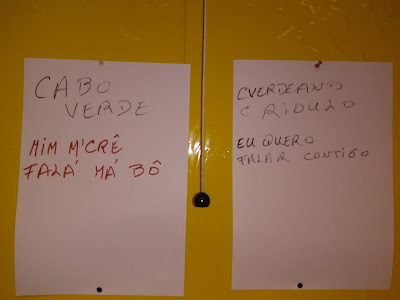 CABO
VERDE
MIM M'CRÊ
FALÁ MÁ BÔ
CVERDEANO
CRIOULO
EU QUERO
FALAR CONTIGO